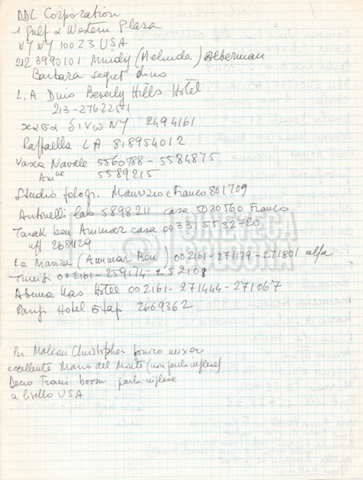 DDL Corporation
1 Gulf & Western Plaza
NY NY 10023 USA
212 3990101 Mindy (Melinda) Alberman
Barbara segret Dino
L.A Dino Beverly Hills Hotel
213-2762251
NY 2494161
Raffaella LA 818954012
Vasca Navale 5560788 - 5584875
5589215
Studio fotogr. Maurizio e Franco 801709
Antonelli Lao 5898211 casa 3030560 Franco
Tarak ben Ammar casa
uff 2684129
La Marsa (Ammar Ben) 002161-271179-271801 alfa
Tunisi 002161-259174-252108
Abou Nawas Hotel 002161-271444-271067
Parigi Hotel 2669362
CINETECA
BOLOGNA
Per Malcom Christopher fonico mixer
eccellente Mario del Monte (non parla inglese)
Decio Trani boom parla inglese
a livello USA